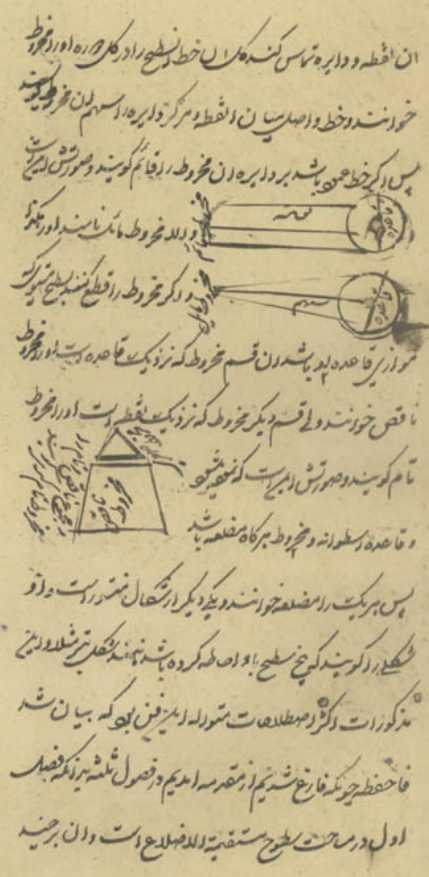 ان نقطه و دایره تماس کند کل ان خط ان سطح را در کل دوره او را مخروط
خوانند و خط واصل میان ان نقطه و مرکز دایره را سهم ان مخروط گویند
پس اگر خط عمود باشد بر دایره ان مخروط را قائم گویند و صورتش این است
و الا مخروط مائل نامند او را هکذا
سهم
قاعده
و اگر مخروط را قطع کنند بسطح مستوی که
مخروط مایل
سهم
قاعده
موازی قاعده او باشد ان قسم مخروط که نزدیک قاعده است او را مخروط
ناقص خوانند و ان قسم دیگر مخروط که نزدیک نقطه است او را مخروط
تام گویند و صورتش این است
و قاعده اسطوانه و مخروط هرگاه مضلعه باشد
پس هر یک را مضلعه خوانند و یکی دیگر از اشکال منشور است و او
شکلی را گویند که پنج سطح باو احاطه کرده باشد
مذکورات اکثر اصطلاحات متداوله این فن بود که بیان شد
فاحفظ چونکه فارغ شدیم از مقدمه امدیم در فصول ثلثه فصل
اول در مساحت سطوح مستقیمة الاضلاع است و ان بر چند